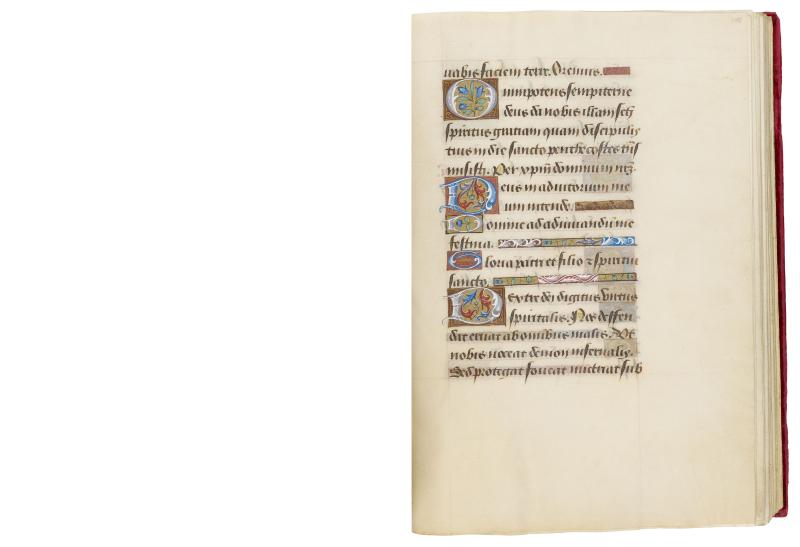 uabis faciem terre. Oremus.
Omnipotens sempiterne
deus da nobis illam scti
spiritus gratiam quam discipulis
tuis in die sancto penthecostes trāss
misisti. Per xpm dominum
Deus in adiutorium me
um intende.
Domine ad adiuuandum me
festina.
Gloria patri et filio et spiritui
sancto.
Dextre dei digitus virtus
spiritalis. Nos deffen
dat eruat ab omnibus malis. Vt
nobis noceat demon infernalis.
Sed protegat foueat nutriat sub